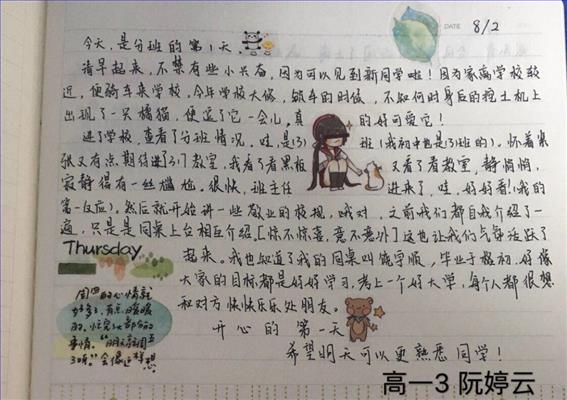 DATE 8/2
今天,是分班的第1天,
清早起来,不禁有些小兴奋,因为可以见到新同学啦!因为家离学校较
近,便骑车来学校,今年学校大修,锁车的时候,不知何时身后的挖土机上
出现了一只橘猫,便逗了它一会儿,真的好可爱它!
进了学校,查看了分班情况,哇,是(3)班(我初中也是(3)班的)。怀着紧
张又有点期待进了(3)门教室,我看了看黑板又看了看教室,静悄悄,
寂静得有一丝尴尬。很快,班主任进来了,哇,好好看!(我的
第一反应)。然后就开始讲一些敬业的校规,哦对,之前我们都自我介绍了一
遍,只是是同桌上台相互介绍,[惊不惊喜,意不意外]这也让我们气氛活跃了
起来。我也知道了我的同桌叫饶宇顺,毕业于格初,好像
大家的目标都是好好学习,考上一个好大学,每个人都很想
和对方快快乐乐处朋友。
开心的第一天
希望明天可以更熟悉同学!
Thursday
周四的心情就
好多了,有点暖暖
的,忙完了大部分的
事情,“明天就周五
了呀。”会很这样想
高一3 阮婷云